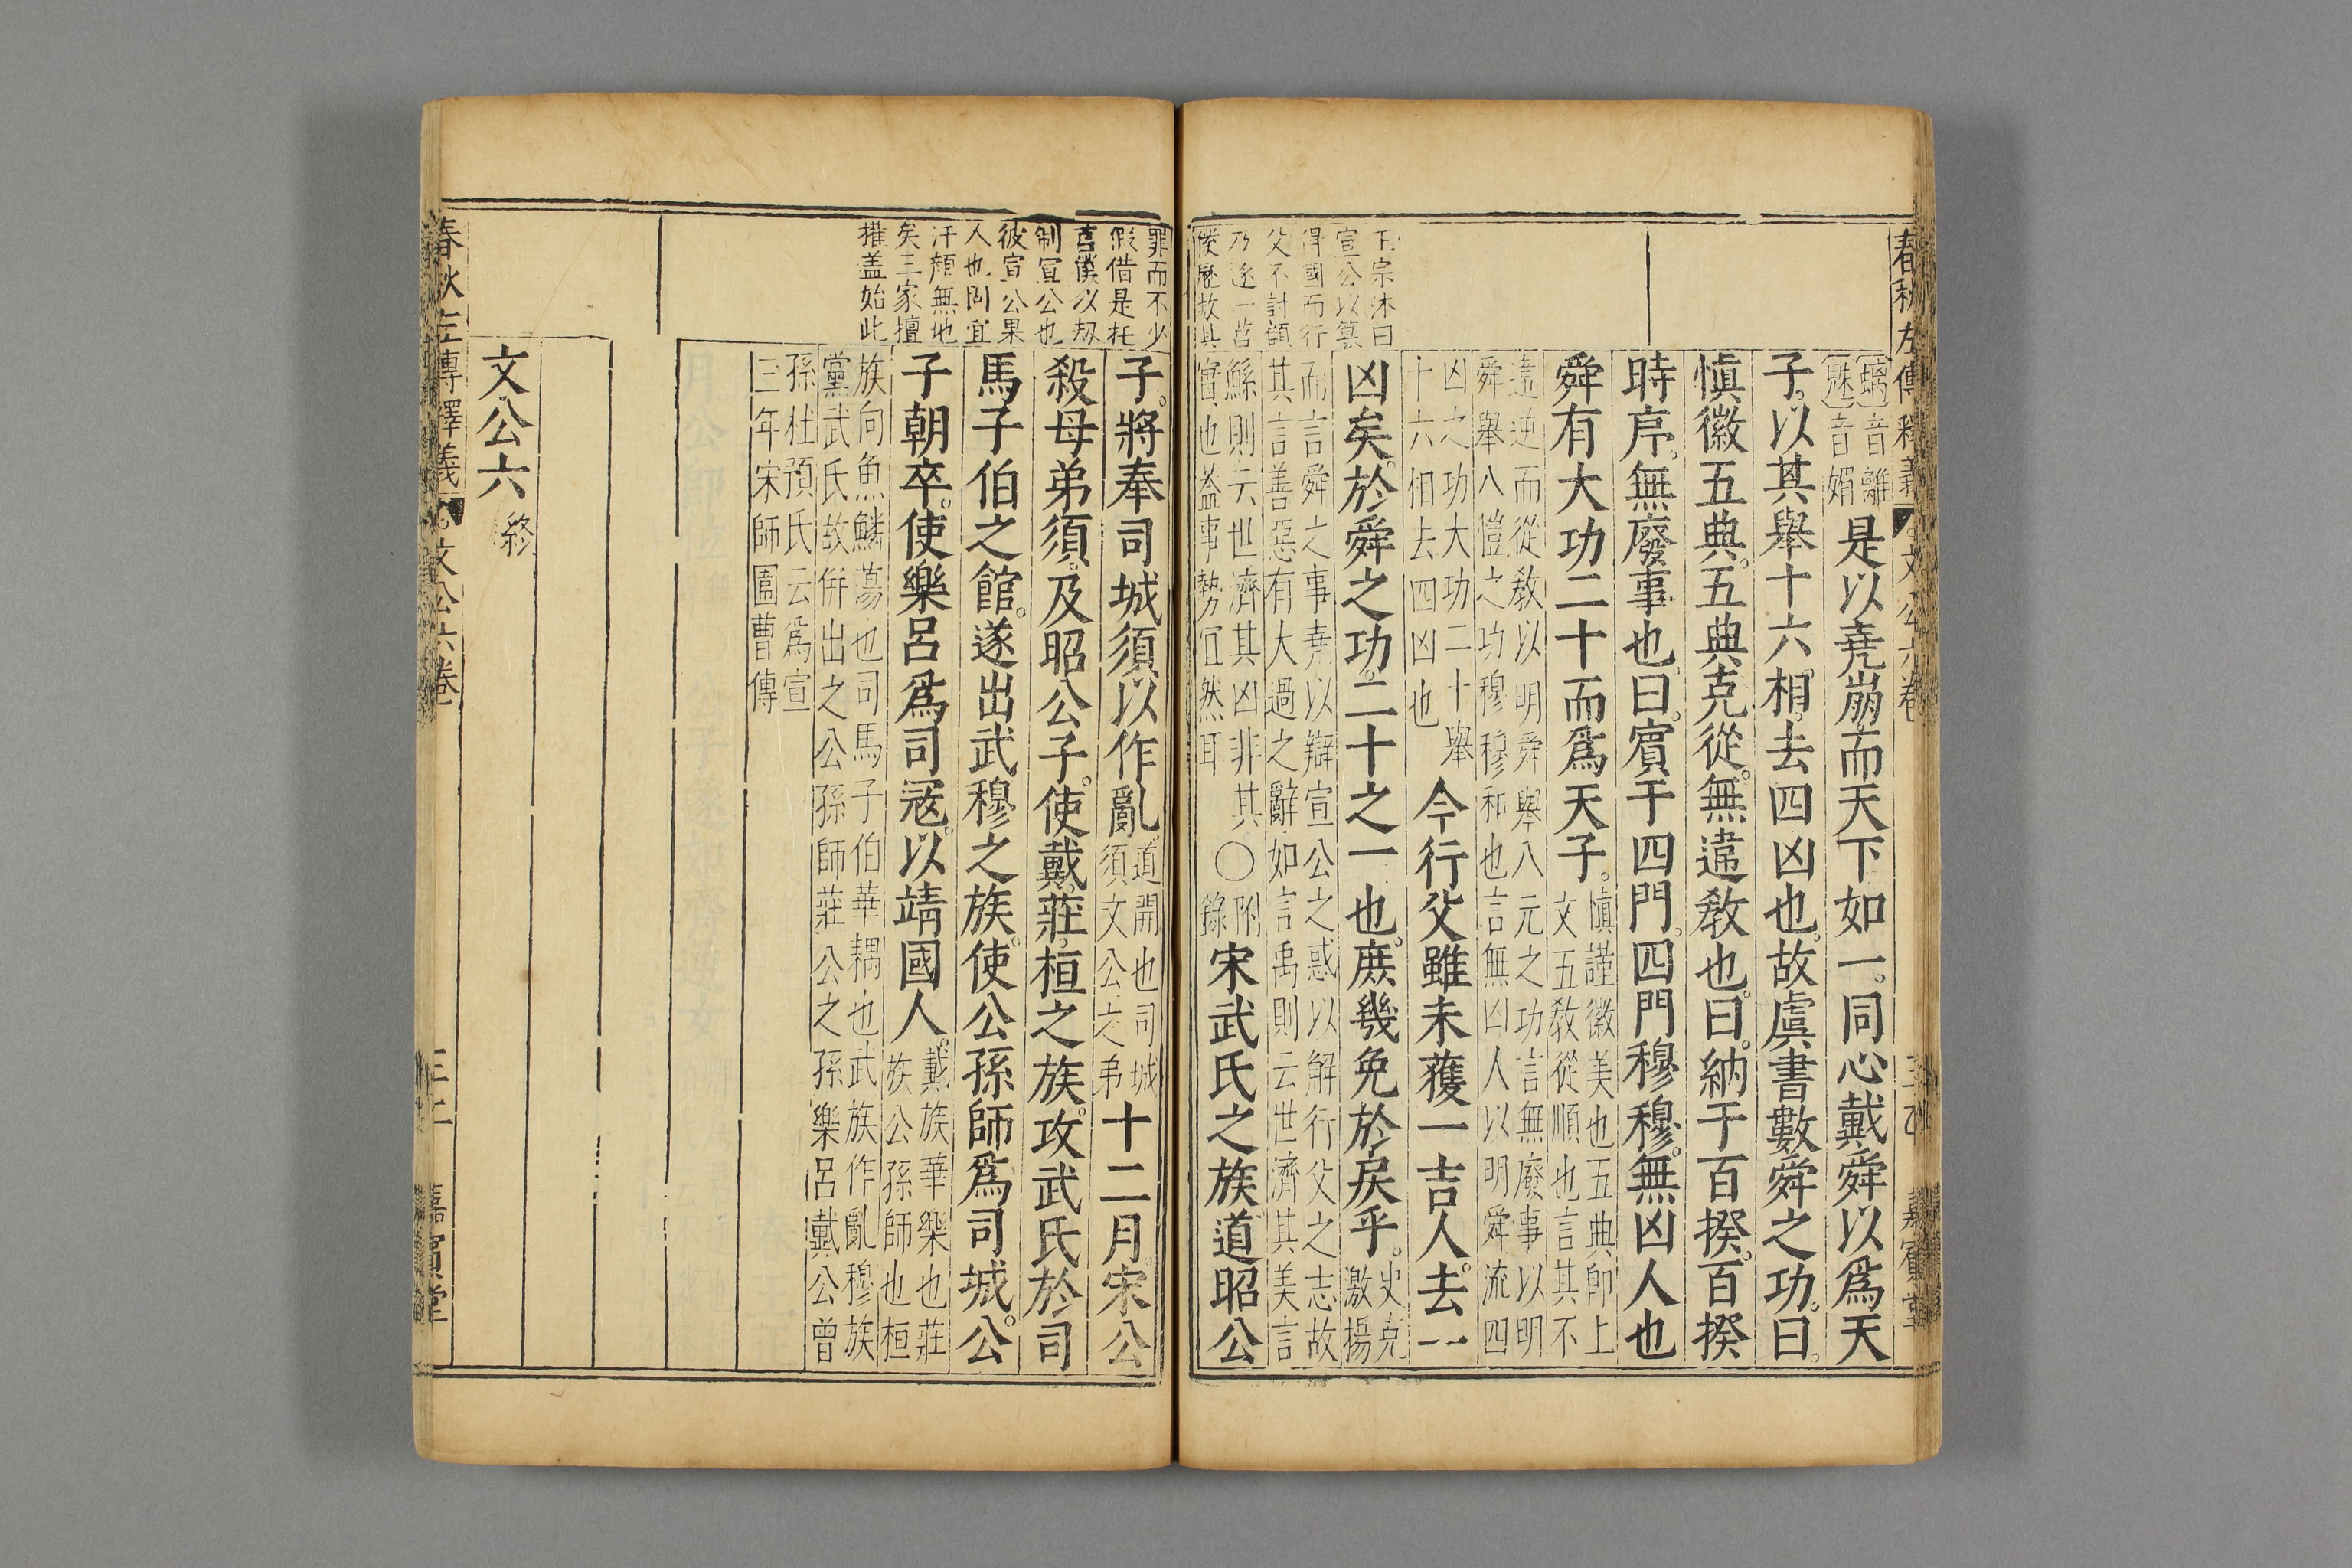 春秋左傳釋義
文公六卷
嘉賓堂
王宗沐曰
宣公以簒
得國而行
父不討顧
乃逐一莒
僕愆故其
螭音離
魅音媚
是以堯崩而天下如一同心戴舜以爲天
子以其舉十六相去四凶也故虞書數舜之功曰
慎徽五典五典克從無違教也曰納于百揆百揆
時序無廢事也曰賓于四門四門穆穆無凶人也
舜有大功二十而爲天子
慎謹徽美也五典卽上
文五教從順也言其不
違逆而從教以明舜舉八元之功言無廢事以明
舜舉八愷之功穆穆和也言無凶人以明舜流四
凶之功大功二十舉
十六相去四凶也
今行父雖未獲一吉人去一
凶矣於舜之功二十之一也庶幾免於戾乎
史克
激揚
而言舜之事堯以辯宣公之惑以解行父之志故
其言善惡有大過之辭如言禹則云世濟其美言
鯀則云世濟其凶非其
實也蓋事勢宜然耳
〇附錄
宋武氏之族道昭公
罪而不少
假借是托
莒僕以刼
制宣公也
彼宣公果
人也則宜
汗顔無地
矣三家擅
權盖始此
子將奉司城須以作亂
道開也司城
須文公之弟
十二月宋公
殺母弟須及昭公子使戴莊桓之族攻武氏於司
馬子伯之館遂出武穆之族使公孫師爲司城公
子朝卒使樂呂爲司寇以靖國人
戴族華樂也莊
族公孫師也桓
族向魚鱗蕩也司馬子伯華耦也武族作亂穆族
黨武氏故併出之公孫師莊公之孫樂呂戴公曾
孫杜預氏云爲宣
三年宋師圍曹傳
文公六終
春秋左傳釋義
文公六卷
嘉賓堂